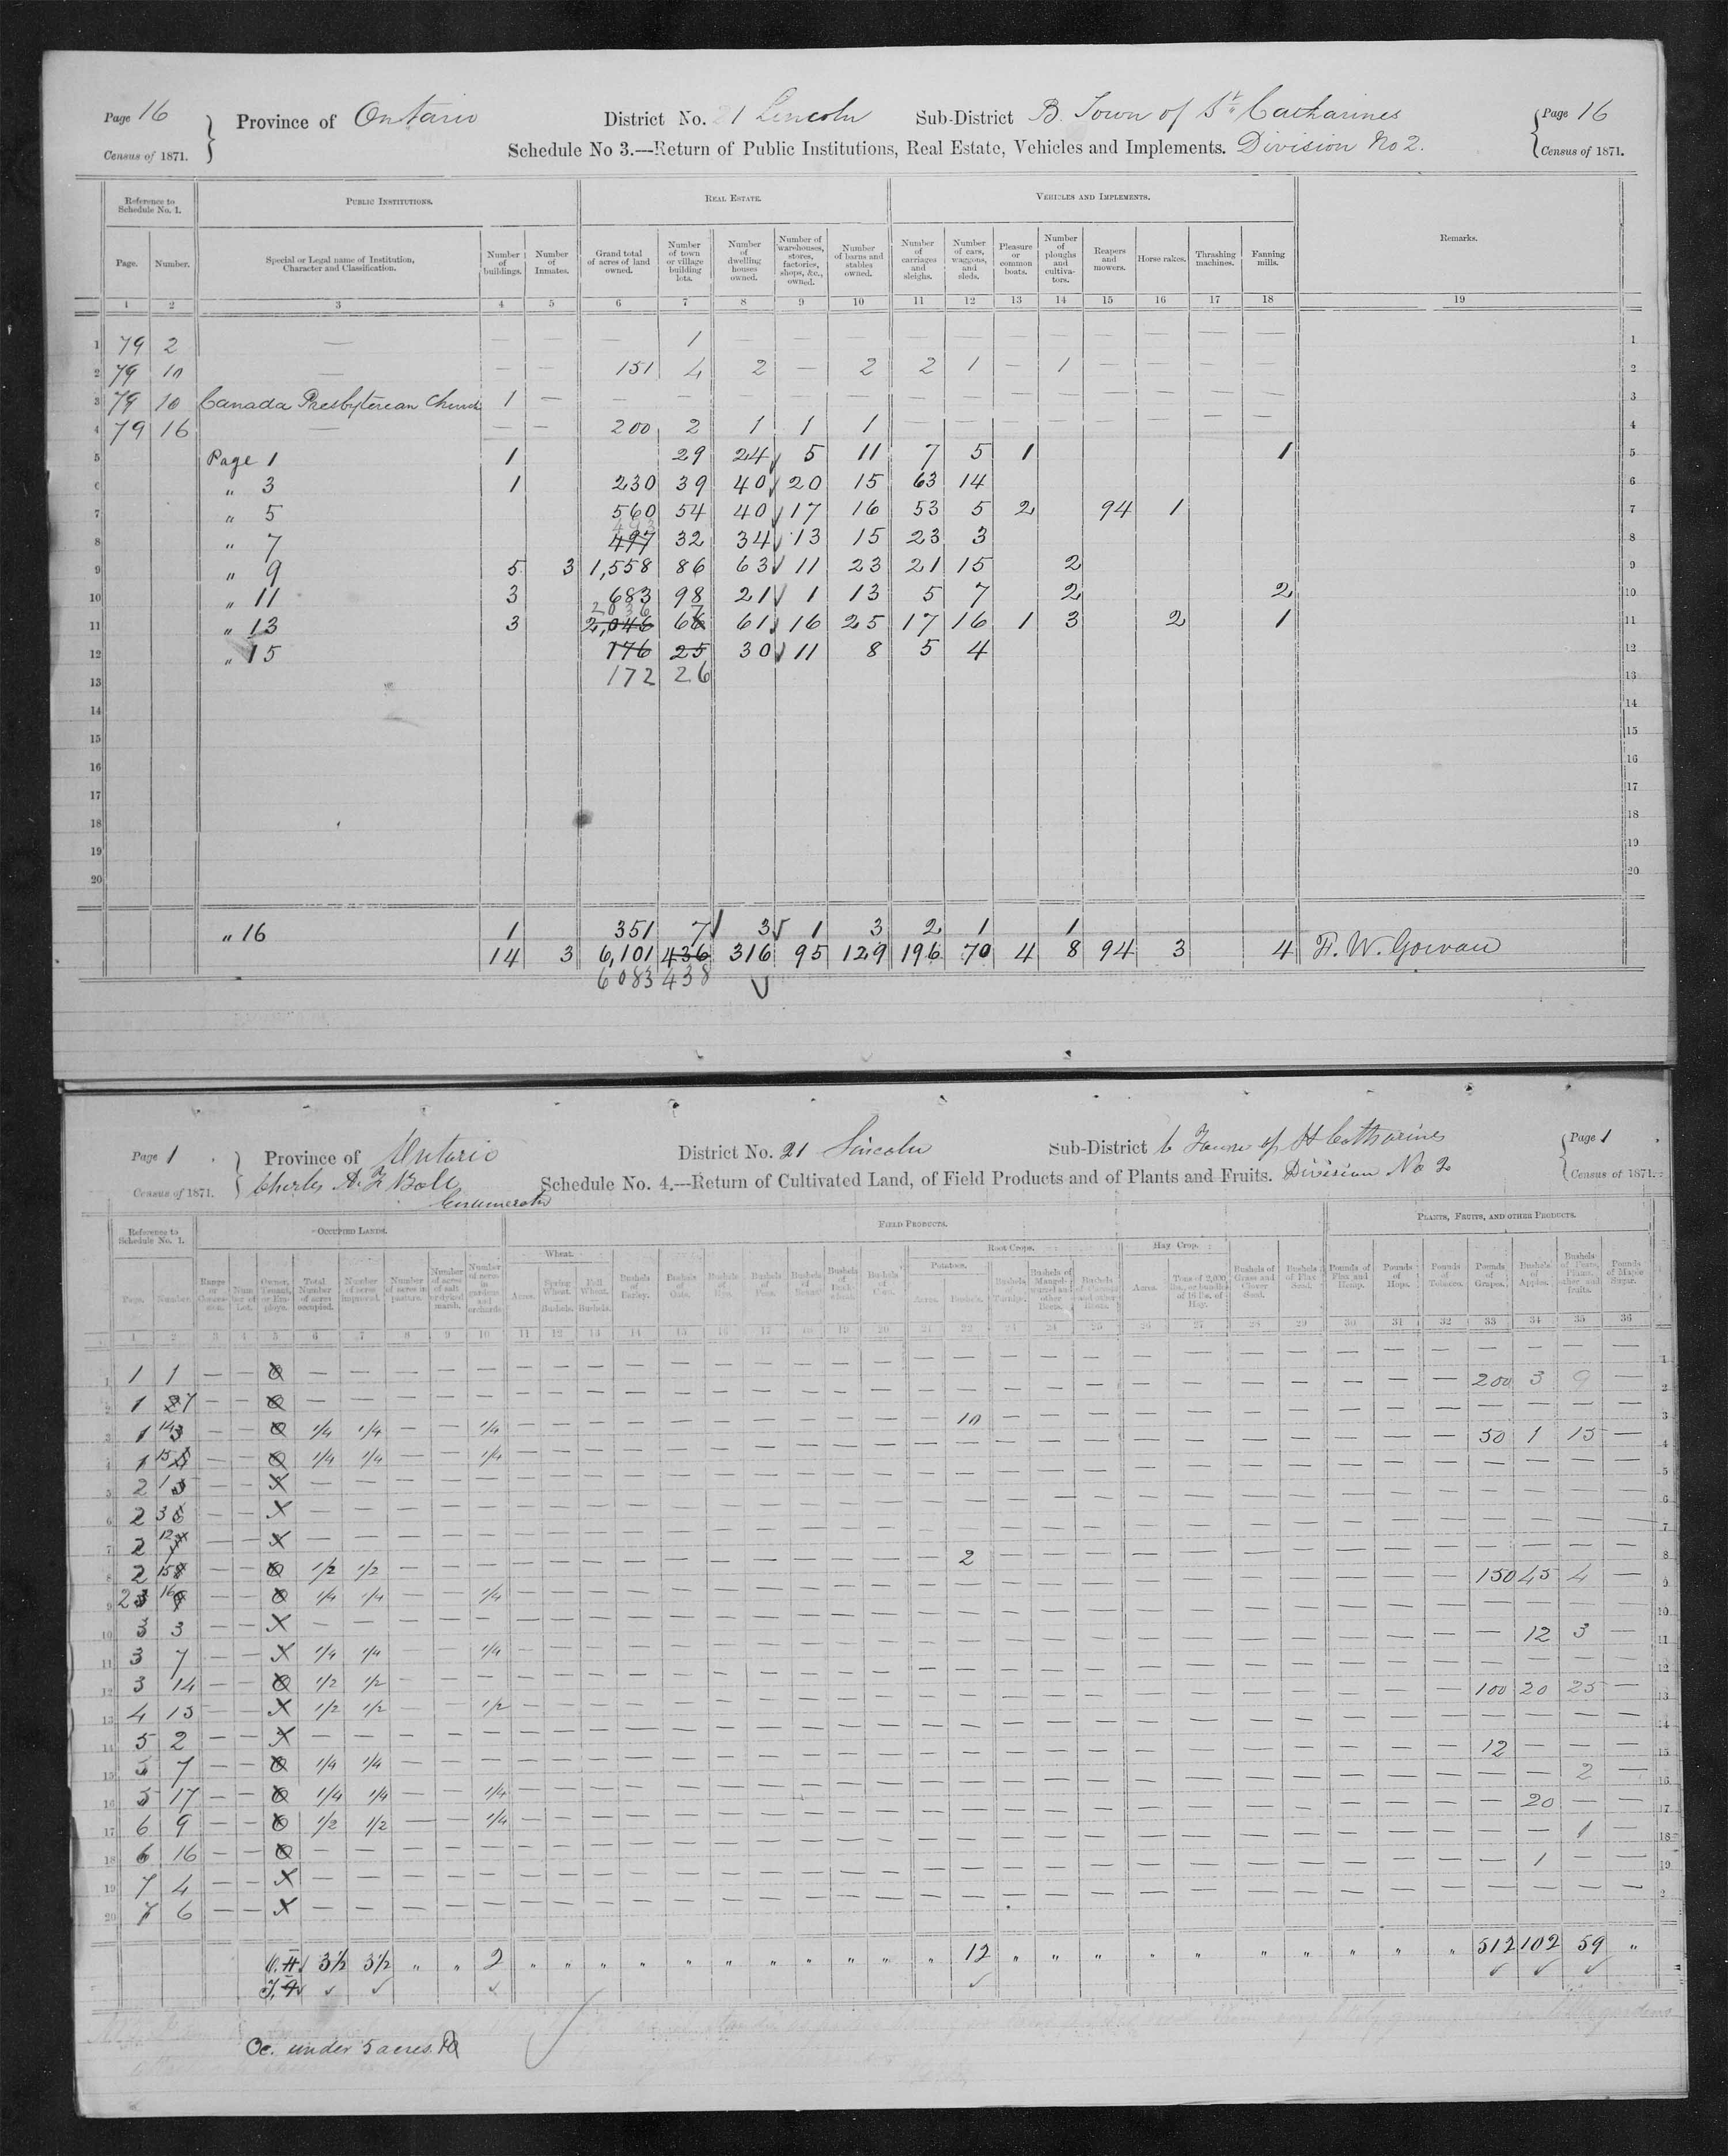 Page 16 Province of Ontario District No. 21 Lincoln Sub-District B. Town of St Catharines Page 16
Census of 1871. Schedule No 3.—Return of Public Institutions, Real Estate, Vehicles and Implements. Division No 2. Census of 1871.
Reference to Schedule No. 1. PUBLIC INSTITUTIONS. REAL ESTATE. VEHICLES AND IMPLEMENTS. Remarks.
Page. Number. Special or Legal name of Institution, Character and Classification. Number of buildings. Number of Inmates. Grand total of acres of land owned. Number of town or village building lots. Number of dwelling houses owned. Number of warehouses, stores, factories, shops, &c., owned. Number of barns and stables owned. Number of carriages and sleighs. Number of cars, waggons, and sleds. Pleasure or common boats. Number of ploughs and cultiva-tors. Reapers and mowers. Horse rakes. Thrashing machines. Fanning mills.
1 2 3 4 5 6 7 8 9 10 11 12 13 14 15 16 17 18 19
1 79 2 — — — — 1 — — — — — — — — — — — 1
2 79 10 — — — 151 4 2 — 2 2 1 — 1 — — — — 2
3 79 10 Canada Presbyterean Church 1 — — — — — — — — — — — — — — 3
4 79 16 — — — 200 2 1 1 1 — — — — — — — — 4
5 Page 1 1 29 24 5 11 7 5 1 1 5
6 " 3 1 230 39 40 20 15 63 14 6
7 " 5 560 54 40 17 16 53 5 2 94 1 7
493
8 " 7 497 32 34 13 15 23 3 8
9 " 9 5 3 1,558 86 63 11 23 21 15 2 9
10 " 11 3 683 98 21 1 13 5 7 2 2 10
2036 7
11 " 13 3 2,046 66 61 16 25 17 16 1 3 2 1 11
12 " 15 176 25 30 11 8 5 4 12
13 172 26 13
14 14
15 15
16 16
17 17
18 18
19 19
20 20
" 16 1 351 7 3 1 3 2 1 1
14 3 6,101 436 316 95 129 196 70 4 8 94 3 4 F. W. Gowan
6083 438
Page 1 Province of Ontario District No. 21 Lincoln Sub-District b Town of St Catharines Page 1
Census of 1871. Charles A. F. Ball Schedule No. 4.—Return of Cultivated Land, of Field Products and of Plants and Fruits. Division No 2 Census of 1871.
Enumerator
Reference to Schedule No. 1. OCCUPIED LANDS. FIELD PRODUCTS. PLANTS, FRUITS, AND OTHER PRODUCTS.
Wheat. Root Crops. Hay Crop.
Potatoes.
Page. Number. Range or Conces-sion. Num-ber of Lot. Owner, Tenant, or Em-ploye. Total Number of acres occupied. Number of acres improved. Number of acres in pasture. Number of acres of salt or dyked marsh. Number of acres in gardens and orchards. Acres. Spring Wheat. Bushels. Fall Wheat. Bushels. Bushels of Barley. Bushels of Oats. Bushels of Rye. Bushels of Peas. Bushels of Beans. Bushels of Buck-wheat. Bushels of Corn. Acres. Bushels. Bushels of Turnips. Bushels of Mangel-wurzel and other Beets. Acres. Tons of 2,000 lbs. or bundles of 16 lbs. of Hay. Bushels of Grass and Clover Seed. Bushels of Flax Seed. Pounds of Flax and Hemp. Pounds of Hops. Pounds of Tobacco. Pounds of Grapes. Bushels of Apples. Bushels of Pears, Plums, other and fruits. Pounds of Maple Sugar.
1 2 3 4 5 6 7 8 9 10 11 12 13 14 15 16 17 18 19 20 21 22 23 24 25 26 27 28 29 30 31 32 33 34 35 36
1 1 1 — — — —
2 1 — — — — 200 3 9 —
3 1 — — 1/4 1/4 — — 1/4 — 10 —
4 1 — — 1/4 1/4 — — 1/4 — 50 1 15 —
5 2 — — X —
6 2 — — X —
7 2 — — X —
8 2 — — 1/2 1/2 — 2 —
9 — — 1/4 1/4 — 1/4 — 150 45 4 —
10 3 3 — — X —
11 3 7 — — X 1/4 1/4 — 1/4 — 12 3 —
12 3 14 — — 1/2 1/2 —
13 4 13 — — X 1/2 1/2 — 1/2 — 100 20 25 —
14 5 2 — — X —
15 5 7 — — 1/4 1/4 — 12 —
16 5 17 — — 1/4 1/4 — — 1/4 — 2 —
17 6 9 — — 1/2 1/2 — — 1/4 — 20 — —
18 6 16 — — — 1 —
19 7 4 — — X — 1 — —
20 7 6 — — X —
O. 11 3 1/2 3 1/2 " " 2 " " " " " " " " " " " 12 " " " " " " " " " " 512 102 59 "
T. 9
Oc. under 5 acres.